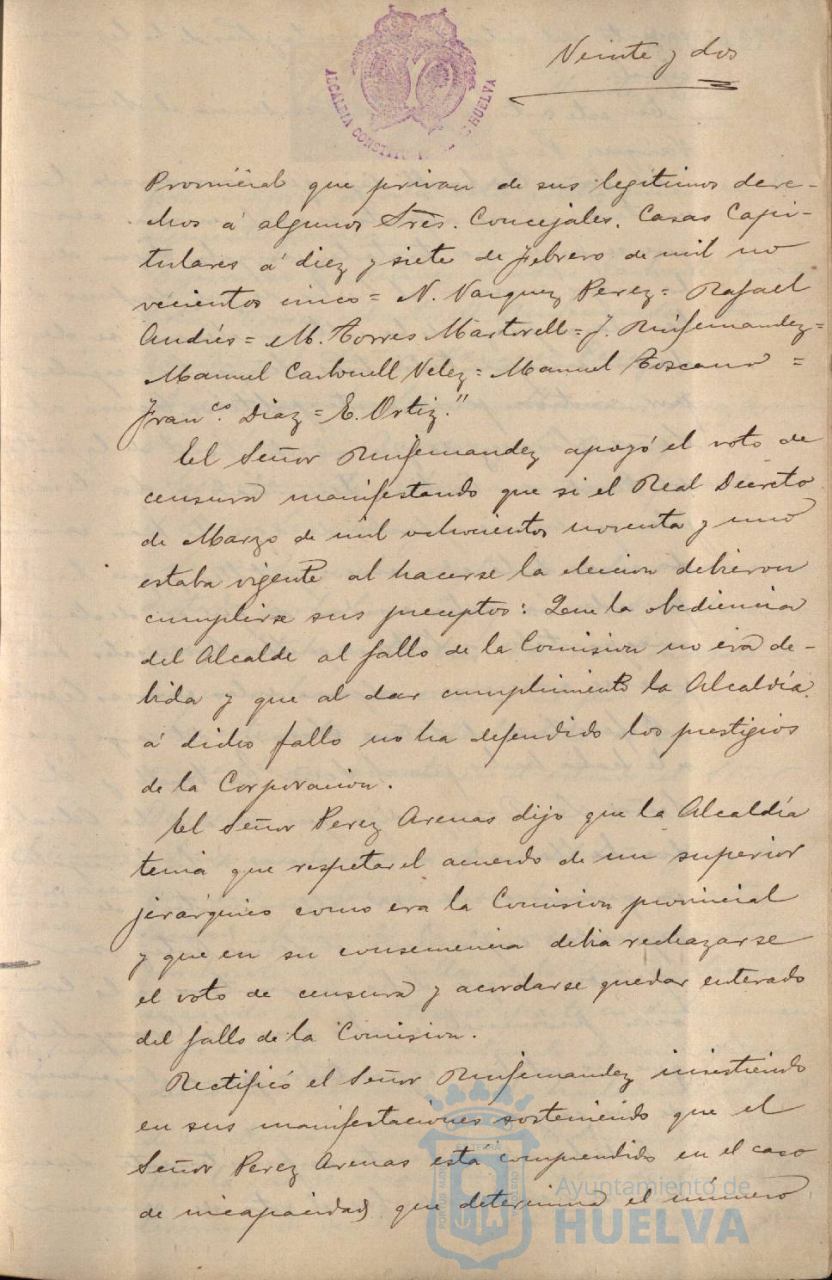 Veinte y dos
ALCALDIA CONSTITUCIONAL HUELVA
Provincial que privan de sus legítimos dere-
chos á algunos Sres. Concejales. Casas Capi-
tulares á diez y siete de Febrero de mil no
vecientos cinco = N. Vazquez Perez = Rafael
Andrés = M. Torres Martorell = J. Ruifernandez =
Manuel Carbonell Velez = Manuel Toscano =
Franco. Diaz = E. Ortiz."
El Señor Ruifernandez apoyó el voto de
censura manifestando que si el Real Decreto
de Marzo de mil ochocientos noventa y uno
estaba vigente al hacerse la eleccion debieron
cumplirse sus preceptos: Que la obediencia
del Alcalde al fallo de la Comision no era de-
bida y que al dar cumplimiento la Alcaldía
á dicho fallo no ha defendido los prestigios
de la Corporacion.
El Señor Perez Arenas dijo que la Alcaldía
tenia que respetar el acuerdo de un superior
jerárquico como era la Comision provincial
y que en su consecuencia debia rechazarse
el voto de censura y acordarse quedar enterado
del fallo de la Comision.
Rectificó el Señor Ruifernandez insistiendo
en sus manifestaciones sosteniendo que el
Señor Perez Arenas está comprendido en el caso
de incapacidad que determina el número
Ayuntamiento de
HUELVA